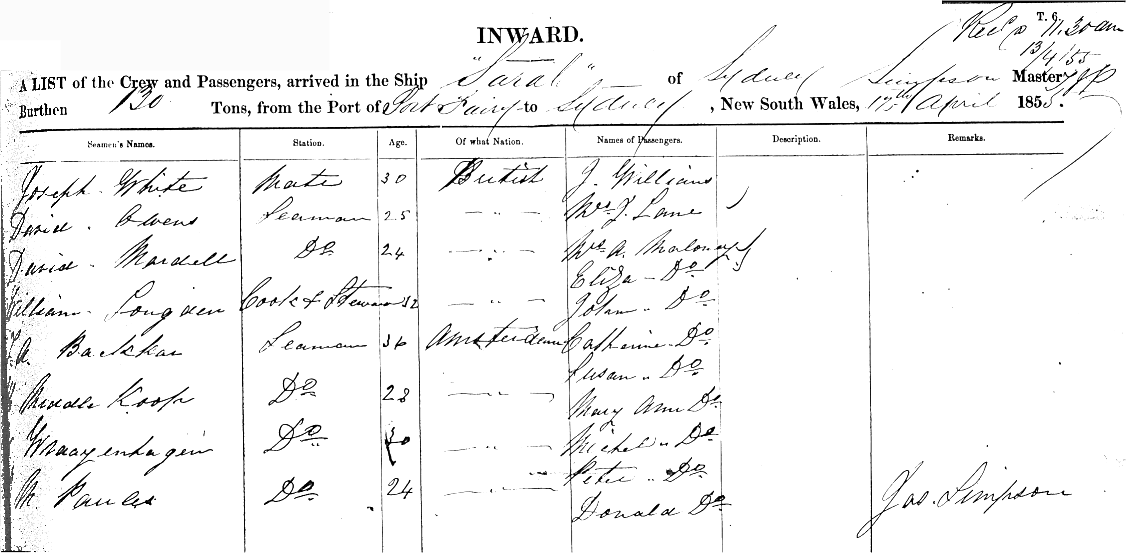 T. 6.
Rec'd 11.30 am
13/4/55
INWARD.
A LIST of the Crew and Passengers, arrived in the Ship "Sarah" of Sydney Simpson Master
Burthen 130 Tons, from the Port of Port Fairy to Sydney, New South Wales, 12th April 1855.
Seamen's Names. Station. Age. Of what Nation. Names of Passengers. Description. Remarks.
Joseph White Mate 30 British J. Williams
David Owens Seaman 25 " Mrs J. Lane
David Mardell Do 24 " Mrs A. Maloney
Eliza Do
William Longden Cook & Steward 32 " John Do
A. Bakkar Seaman 36 Amsterdam Catherine Do
Susan Do
Middle Koop Do 28 " Mary Ann Do
Do " Michel Do
Peter Do
Do 24 " Donald Do
Jas. Simpson